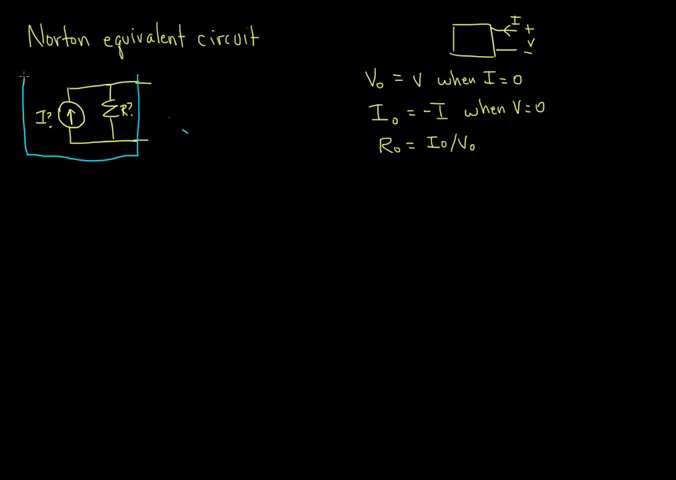 Norton equivalent circuit
I
+
V
-
V₀ = V when I=0
I₀ = -I when V=0
R₀ = I₀/V₀
I?
R?